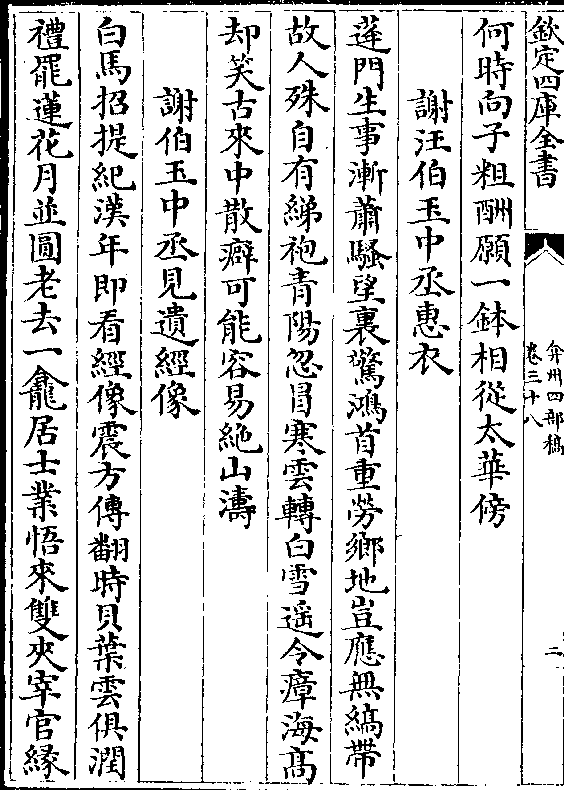 欽定四庫全書
弇州四部稿
卷三十八
二
何時向子粗酬願一鉢相從太華傍
謝汪伯玉中丞惠衣
蓬門生事漸蕭騷望裏驚鴻首重勞鄉地豈應無縞帶
故人殊自有綈袍青陽忽冒寒雲轉白雪遥令瘴海髙
却笑古來中散癖可能容易絶山濤
謝伯玉中丞見遺經像
白馬招提紀漢年即看經像震方傳翻時貝葉雲俱潤
禮罷蓮花月並圓老去一龕居士業悟來雙夾宰官縁